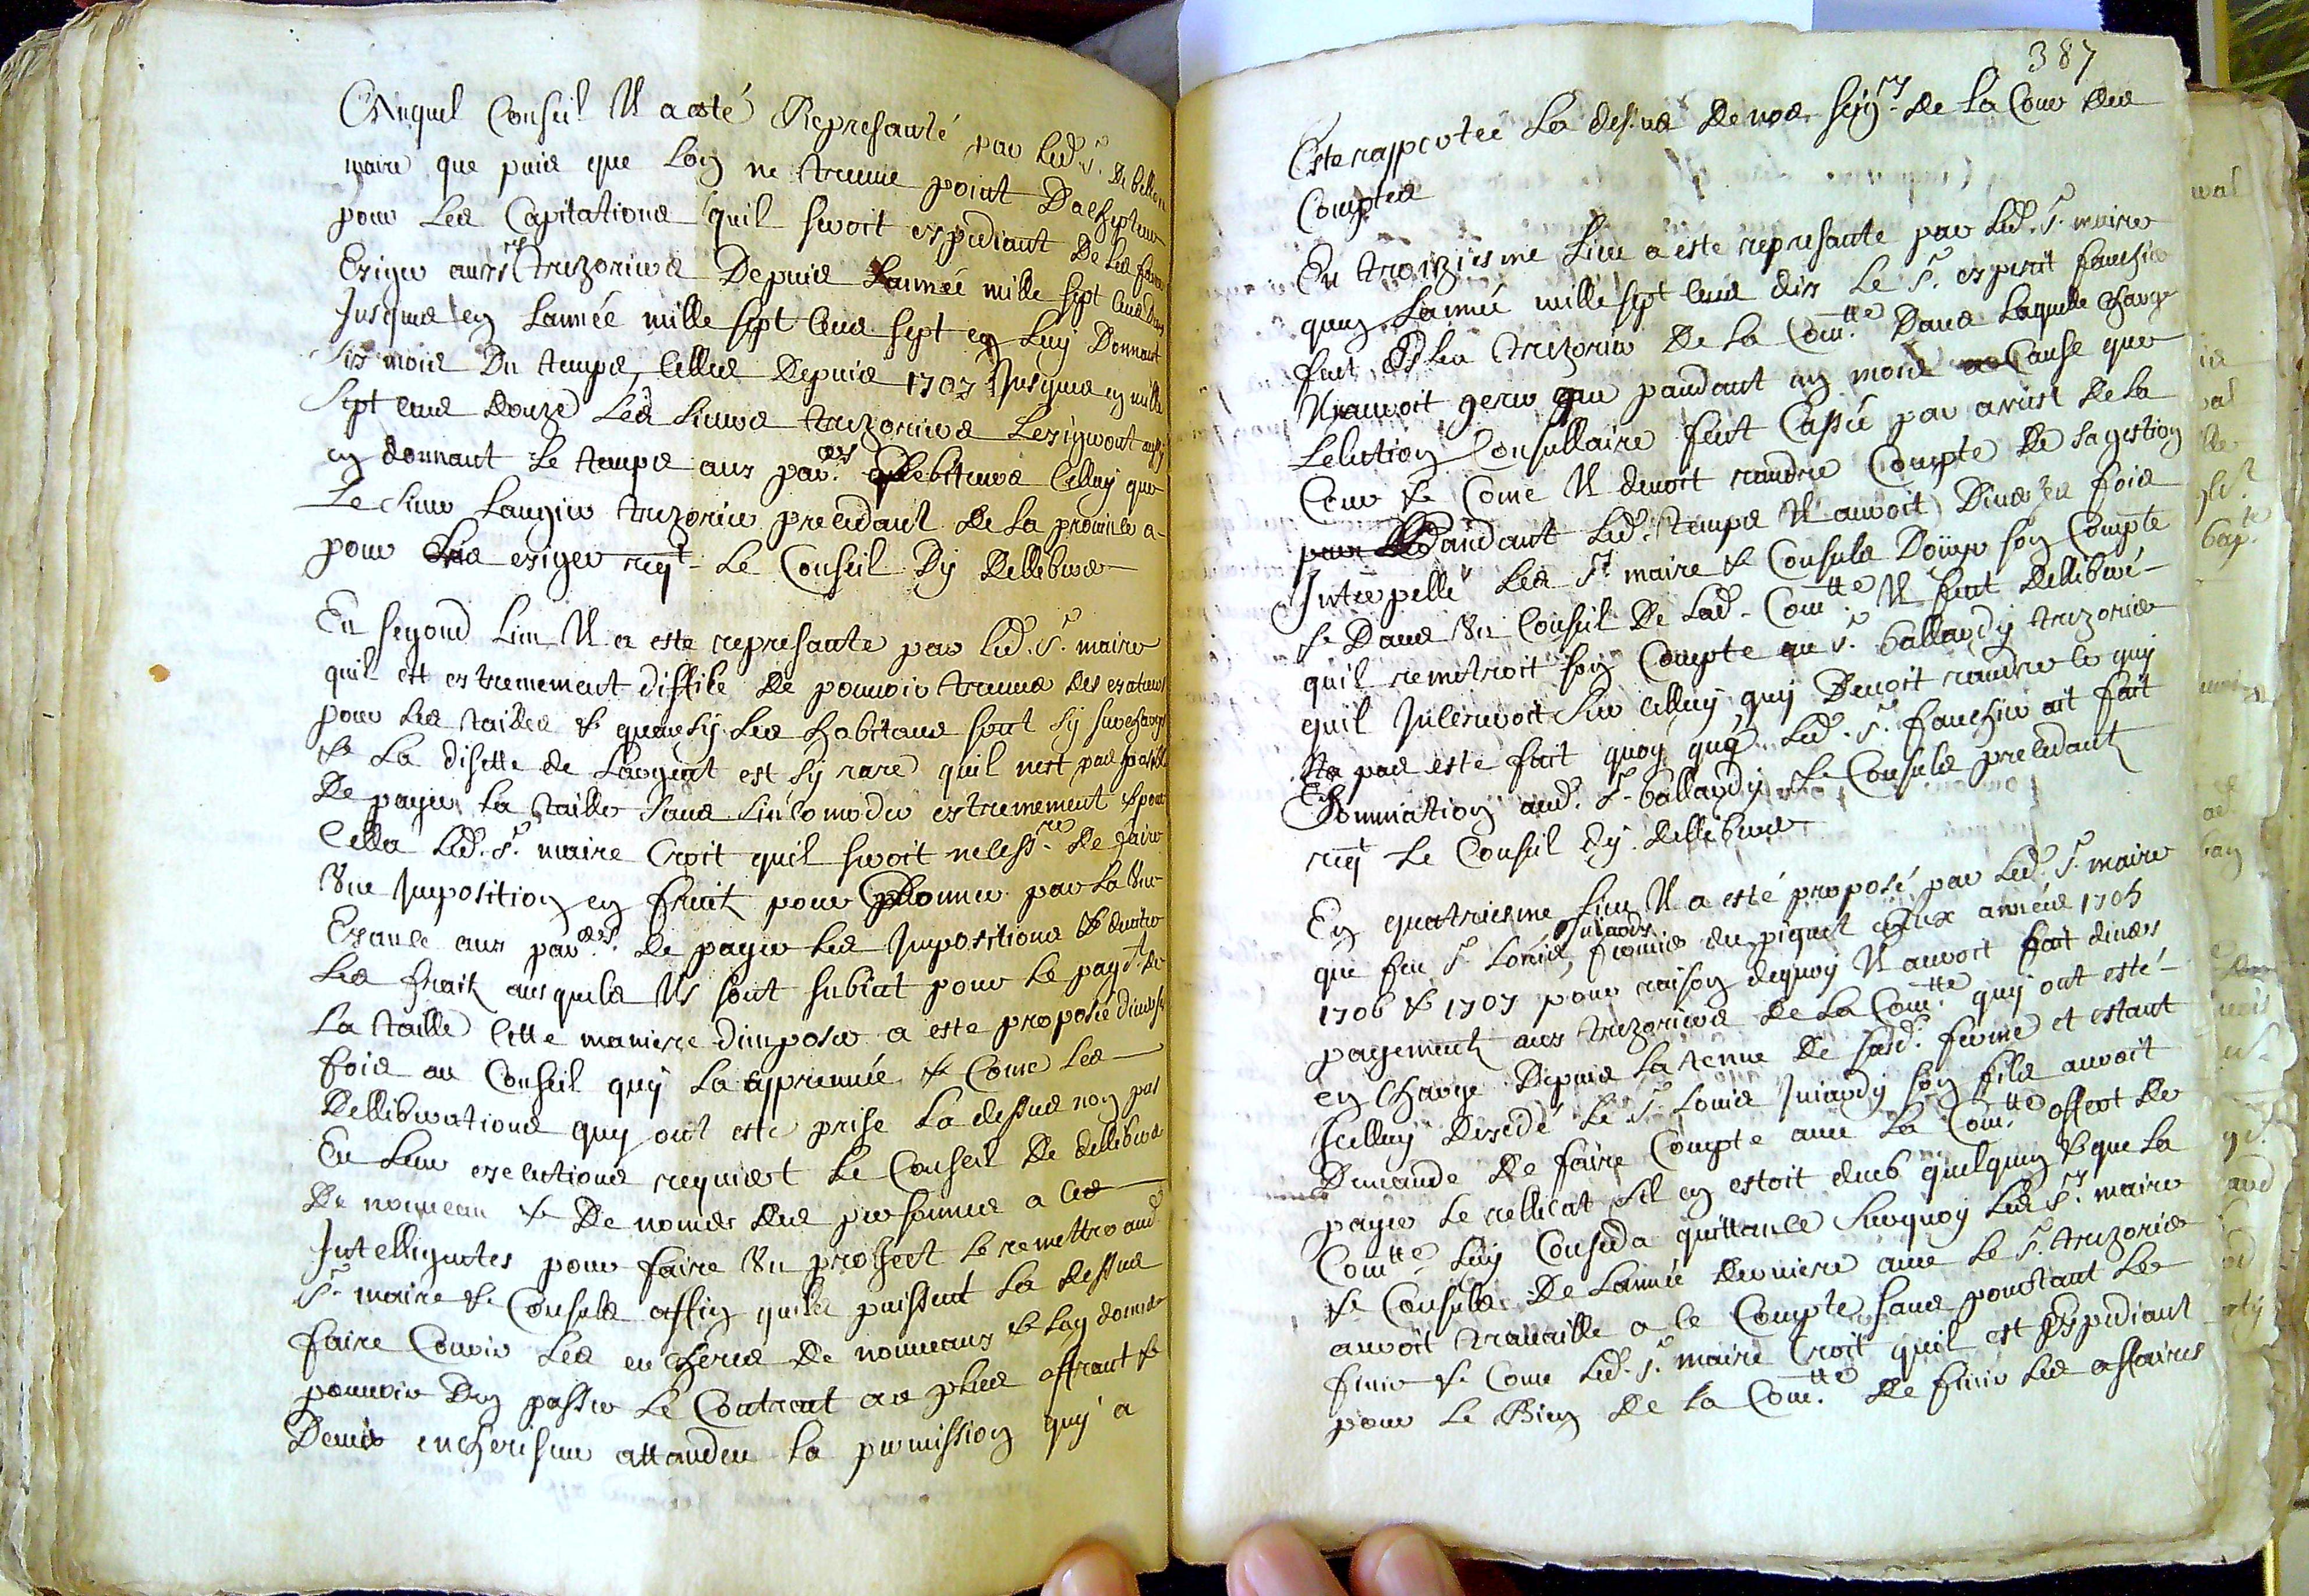 Auquel Conseil Il a esté Representé par led. Sr. De bellon
maire que puis que Lon ne treuve point Dachepteur
pour Les Capitations quil seroit expediant De les faire
Exiger aux srs trezoriers Depuis Lannée mille sept Cens Deux
Jusques en Lannée mille sept Cens sept en Luy Donnant
six mois Du temps, Celles Depuis 1707 Jusques en mille
sept cens douze Les sieurs trezoriers Lexigeront aussy
en donnant Le temps aux parers Debiteurs Celluy que
Le sieur Laugier trezorier precedant De la province a
pour Les exiger reqt Le Conseil Dy Dellibere
En segond Lieu Il a este represante par led. Sr. maire
quil est extremement diffile de pouvoir treuve des exateurs
pour Les tailles & quausy Les habitans sont sy surcharges
& La disette de Largent est sy rare quil nest pas possible
De payer La taille sans sincomoder extremement & pour
Cella led. Sr. maire Croit quil seroit necessre De faire
Une Imposition en fruit pour Donner par La
aux parers De payer Les Impositions & eviter
Les fraix ausquels Ils sont subiet pour Le payt De
La taille Cette maniere dimposer a este proposée diverse
fois au Conseil quy La apreuvée & Come Les
Dellibérations quy ont este prise La dessus non pas
Eu Leur execlutions requiert Le Conseil De dellibere
De nouveau & De nomer Des personnes a ce
Intelligentes pour faire Un proiect Le remettre aud.
Sr. maire & Consuls affin quils puissent La dessus
faire Courir Les encheres De nouveaux & Lon donner
pouvoir Den passer Le Contract au plus offrant &
Dernier encherisseur attandeu La permission quy a
387
Este rapportée La dessus De nos seigrs De La Cour Des
Comptes
En troiziesme Lieu a este represante par Led. Sr. maire
quen Lannée mille sept Cens dix Le Sr. esperit fauchier
feut esleu trezorier De La Comtte Dans Laquelle Charge
Il nauroit gere que pandant un mois Cause que
Lelection Consullaire feut Cassée par arrest De La
Cour & Come Il devoit randre Compte De sa gestion
pandant Led. temps Il auroit Diverses fois
Interpellé Les Srs maire & Consuls Douyr son Compte
& Dans Un Conseil De Lad. Comtte Il feut Delliberé
quil remetroit son Compte au Sr. ballardy trezorier
quil Incereroit Sur Celluy quy Devoit randre ce quy
Na pas este fait quoy que Led. Sr. fauchier ait fait
Sommation aud. Sr. ballardy & Consuls precedant
reqt Le Conseil dy dellibere
En quatriesme Lieu Il a esté proposé par Led. Sr. maire
Juiardy
que feu Sr. Louis, fermier du piquet années 1705
1706 & 1707 pour raison dequoy Il auroit fait divers
payements aux trezoriers De La Comtte quy ont esté
en Charge Depuis La tenue De sasd. ferme et estant
Icelluy Decedé Le Sr. Louis Juiardy son fils auroit
Demande De faire Compte avec La Comtte offert De
payer Le rellicat sil en estoit dueb quelquun & que La
Comtte Luy Conseda quittance Surquoy Les Srs. maire
& Consuls De Lannée derniere avec Le Sr. trezorier
auroit travaille a ce Compte sans pourtant Le
finir & Come Led. Sr. maire Croit quil est Expediant
pour Le Bien De La Comtte De finir Les affaires